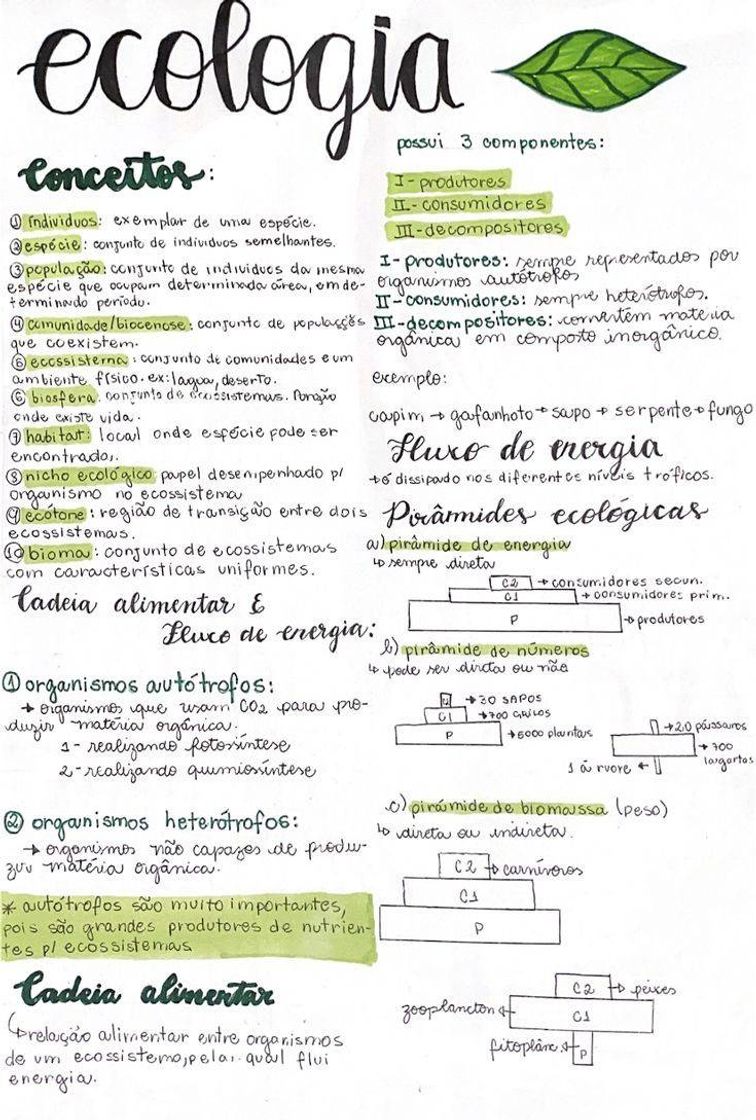 ecologia
conceitos:
① indivíduos: exemplar de uma espécie.
② espécie: conjunto de indivíduos semelhantes.
③ população: conjunto de indivíduos da mesma
espécie que ocupam determinada área, em de-
terminado período.
④ comunidade/biocenose: conjunto de populações
que coexistem.
⑤ ecossistema: conjunto de comunidades e um
ambiente físico. ex: lagoa, deserto.
⑥ biosfera: conjunto de ecossistemas. Porção
onde existe vida.
⑦ habitat: local onde espécie pode ser
encontrado.
⑧ nicho ecológico: papel desempenhado p/
organismo no ecossistema
⑨ ecótone: região de transição entre dois
ecossistemas.
⑩ bioma: conjunto de ecossistemas
com características uniformes.
Cadeia alimentar &
Fluxo de energia:
① organismos autótrofos:
→ organismos que usam CO2 para pro-
duzir matéria orgânica.
1- realizando fotossíntese
2- realizando quimiossíntese
② organismos heterótrofos:
→ organismos não capazes de produ-
zir matéria orgânica.
* autótrofos são muito importantes,
pois são grandes produtores de nutrien-
tes p/ ecossistemas
Cadeia alimentar
↳ relação alimentar entre organismos
de um ecossistema, pela qual flui
energia.
possui 3 componentes:
I- produtores
II- consumidores
III- decompositores
I- produtores: sempre representados por
organismos autótrofos
II- consumidores: sempre heterótrofos.
III- decompositores: convertem matéria
orgânica em composto inorgânico.
exemplo:
capim → gafanhoto → sapo → serpente → fungo
Fluxo de energia
→ é dissipado nos diferentes níveis tróficos.
Pirâmides ecológicas
a) pirâmide de energia
↳ sempre direta
C2 → consumidores secun.
C1 → consumidores prim.
P → produtores
b) pirâmide de números
↳ pode ser direta ou não
C2 → 30 SAPOS
C1 → 700 GRILOS
P → 5000 plantas
→ 20 pássaros
→ 700
lagartas
1 árvore ←
c) pirâmide de biomassa (peso)
↳ direta ou indireta.
C2 → carnívoros
C1
P
C2 → peixes
zooplancton ← C1
fitoplânc. ← P